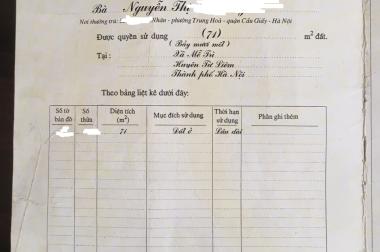 Bà Nguyễn Thị
Nơi thường trú: Nhân - phường Trung Hoà - quận Cầu Giấy - Hà Nội
Được quyền sử dụng (71) m² đất.
( Bảy mươi mốt )
Tại : Xã Mễ Trì
Huyện Từ Liêm
Thành phố Hà Nội
Theo bảng liệt kê dưới đây:
Số tờ bản đồ Số thửa Diện tích (m²) Mục đích sử dụng Thời hạn sử dụng Phần ghi thêm
71 Đất ở Lâu dài